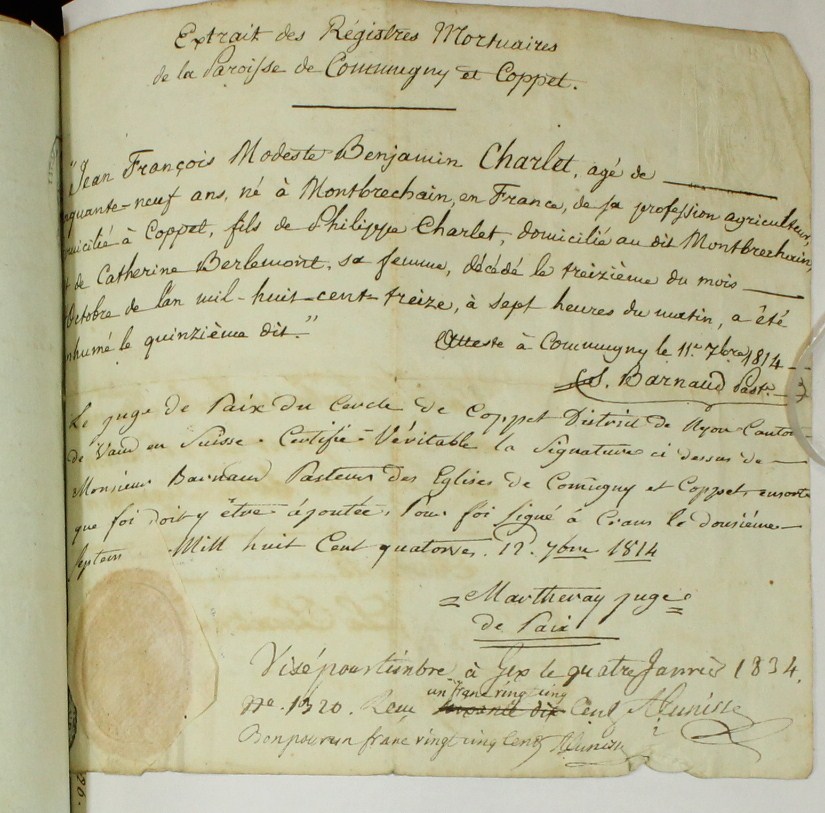 Extrait des Régistres Mortuaires
de la Paroisse de Commugny et Coppet.
"Jean François Modeste Benjamin Charlet, agé de
nquante-neuf ans, né à Montbrechain, en France, de sa profession agriculteur,
micilié à Coppet, fils de Philippe Charlet, domicilié au dit Montbrechain,
de Catherine Berlemont, sa femme, décédé le treizième du mois
Octobre de l'an mil-huit-cent-treize, à sept heures du matin, a été
humé le quinzième dit."
Atteste à Commugny le 11e 7bre 1814
S. Barnaud Past.
Le juge de Paix du Cercle de Coppet District de Nyon Canton
de Vaud en Suisse. Certifie Véritable la Signature ci dessus de
Monsieur Barnaud Pasteur des Eglises de Comugny et Coppet, ensorte
que foi doit y être ajoutée. Pour foi signé à Crans le douzième
Septem Mill huit Cent quatorze. 12. 7bre 1814
Martheray juge
de Paix
Visé pour timbre à Gex le quatre Janvier 1834.
No. 1320. Reçu un franc vingt cinq soixante dix Cent
Bon pour un franc vingt cinq Cent